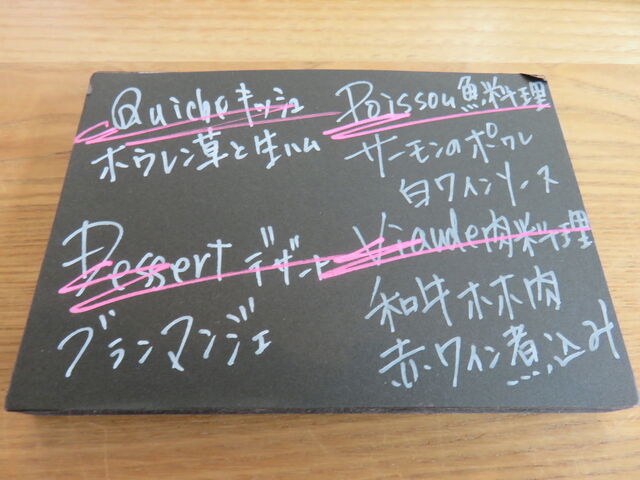 Quiche キッシュ
ホウレン草と生ハム
Poisson 魚料理
サーモンのポワレ
白ワインソース
Dessert デザート
ブランマンジェ
Viande 肉料理
和牛ホホ肉
赤ワイン煮込み